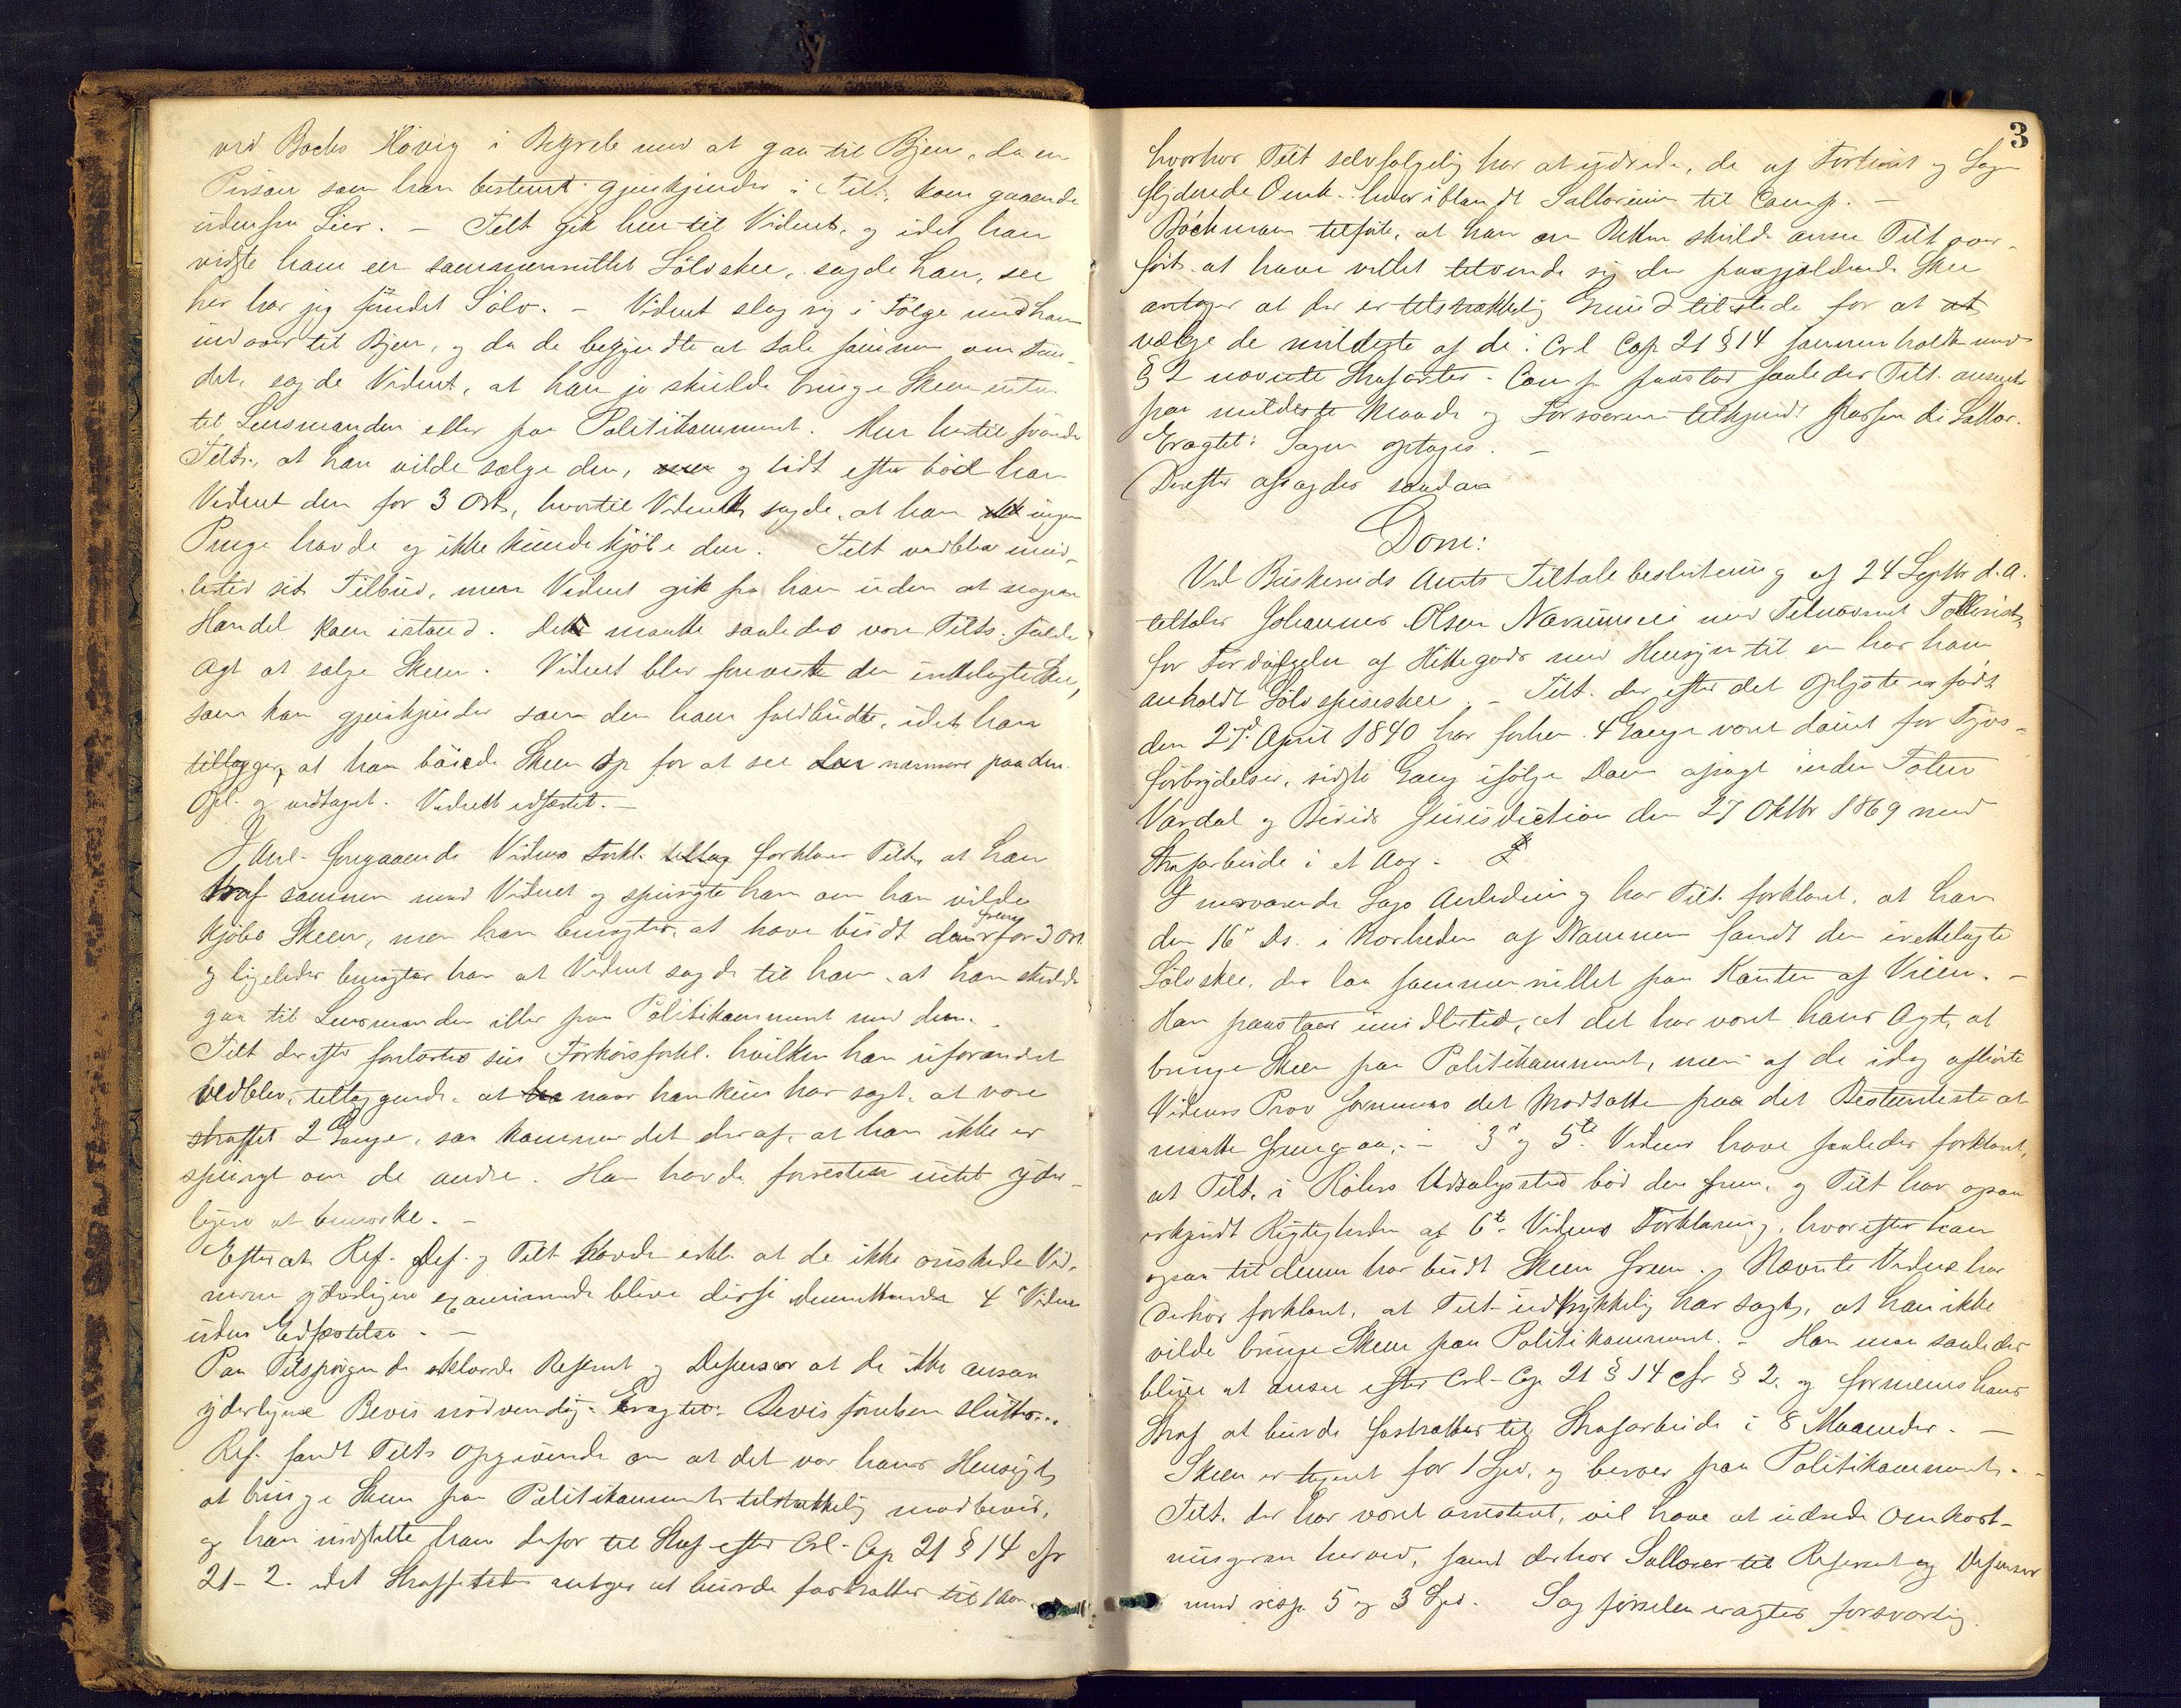 ved Bochs Hövig i Begreb med at gaa til Byen, da en
Person som han bestemt gjenkjender i Tilt., kom gaaende
udenfra Lier. – Tilt gik hen til Vidnet, og idet han
vidste ham en sammenrullet Sölvskee, sagde han, see
her har jeg fundet Sölv. – Vidnet slog sig i Fölge med ham
indover til Byen, og da de begyndte at tale sammen om Fun-
det, sagde Vidnet, at han jo skulde bringe Skeen enten
til Lensmanden eller paa Politikammeret. Men hertil svarede
Tilt., at han vilde sælge den, og lidt efter böd han
Vidnet den for 3 Ort, hvortil Vidnet sagde, at han ingen
Penge havde og ikke kunde kjöbe den. Tilt vedblev imid-
lertid sit Tilbud, men Vidnet gik fra ham uden at nogen
Handel kom istand. Det maatte saaledes være Tilts. fulde
Agt at sælge Skeen. Vidnet blev foreviste den irettelagte Skee,
som han gjenkjender som den ham falbudte, idet han
tillægger, at han böiede Skeen op for at see nærmere paa den.
Opl. og vedtaget. Vidnet edfæstet. –
I Anl. foregaaende Vidnes Forkl. forklarer Tilt., at han
traf sammen med Vidnet og spurgte ham om han vilde
kjöbe Skeen, men han benegter, at have budt den frem for 3 Ort.
og ligeledes benegter han at Vidnet sagde til ham, at han skulde
gaa til Lensmanden eller paa Politikammeret med den. –
Tilt derefter forelæstes sin Forhörsforkl. hvilken han uforandret
vedblev, tillæggende, at naar han kun har sagt, at være
straffet 2 Gange, saa kommer det deraf, at han ikke er
spurgt om de andre. Han havde forresten intet yder-
ligere at bemærke. –
Efterat Ref. Def. og Tilt havde erkl. at de ikke önskede Vid-
nerne yderligere examinerede bleve disse 4 Vidner
uden Edfæstelse. –
Paa Tilspörgende erklærede Referent og Defensor at de ikke ansaa
yderligere Bevis nödvendig. Eragtet: Bevisförelsen sluttes.
Ref. fandt Tilts Opgivende om at det var hans Hensigt,
at bringe Skeen paa Politikammeret tilstrækkelig modbevist,
og han indstillte ham derfor til Straf efter Crl. Cap 21 § 14 cfr
21-2. idet Straffetiden antages at burde fastsættes til 1 Aar.
3
hvorhos Tilt selvfölgelig har at udrede, de af Forhöret og Sagen
flydende Omk. heriblandt Sallarium til Comp. –
Böckmann tilföiede, at han om Retten skulde anse Tilt over-
fört, at have villet tilvende sig den paagjældende Skee
antager at der er tilstrækkelig Grund tilstede for at
vælge de mildeste af de i Crl Cap 21 § 14 sammenholdt med
§ 2 nævnte Strafarter. Comp. paastod saaledes Tilt. anseet
paa mildeste Maade og Forsvareren tilkjendt passende Sallar.
Eragtet: Sagen optages. –
Derefter afsagdes saadan
Dom:
Ved Buskeruds Amts Tiltalebeslutning af 24 Septbr d.A.
tiltales Johannes Olsen Nærumeie med Tilnavnet
for Fordölgelse af Hittegods med Hensyn til en hos ham
anholdt Sölvspiseskee. – Tilt. der efter det Oplyste er födt
den 27d. April 1840 har forhen 4 Gange været dömt for Tyvs-
forbrydelser, sidste Gang ifölge Dom afsagt inden Toten
Vardal og Birids Jurisdiction den 27 Oktbr 1869 med
Strafarbeide i et Aar.
I nærværende Sags Anledning har Tilt. forklaret, at han
den 16' ds. i Nærheden af Drammen fandt den irettelagte
Sölvskee, der laa sammenrullet paa Kanten af Veien. –
Han paastaar imidlertid, at det har været hans Agt, at
bringe Skeen paa Politikammeret, men af de idag afhörte
Vidners Prov formenes det Modsatte paa det Bestemteste at
maatte fremgaa. – 3' og 5te Vidner have saaledes forklaret,
at Tilt. i Udsalgssted böd den frem, og Tilt har ogsaa
erkjendt Rigtigheden af 6te Vidnes Forklaring, hvorefter han
ogsaa til denne har budt Skeen frem. Nævnte Vidne har
derhos forklaret, at Tilt udtrykkelig har sagt, at han ikke
vilde bringe Skeen paa Politikammeret. – Han maa saaledes
blive at ansee efter Crl-Cap 21 § 14 cfr § 2. og formenes hans
Straf at burde fastsættes til Strafarbeide i 8 Maaneder. –
Skeen er taxeret for 1 Spd. og beroer paa Politikammeret. –
Tilt. der har været arresteret, vil have at udrede Omkost-
ningerne herved, samt derhos Sallarier til Referent og Defensor
med resp. 5 og 3 Spd. Sagförselen eragtes forsvarlig.